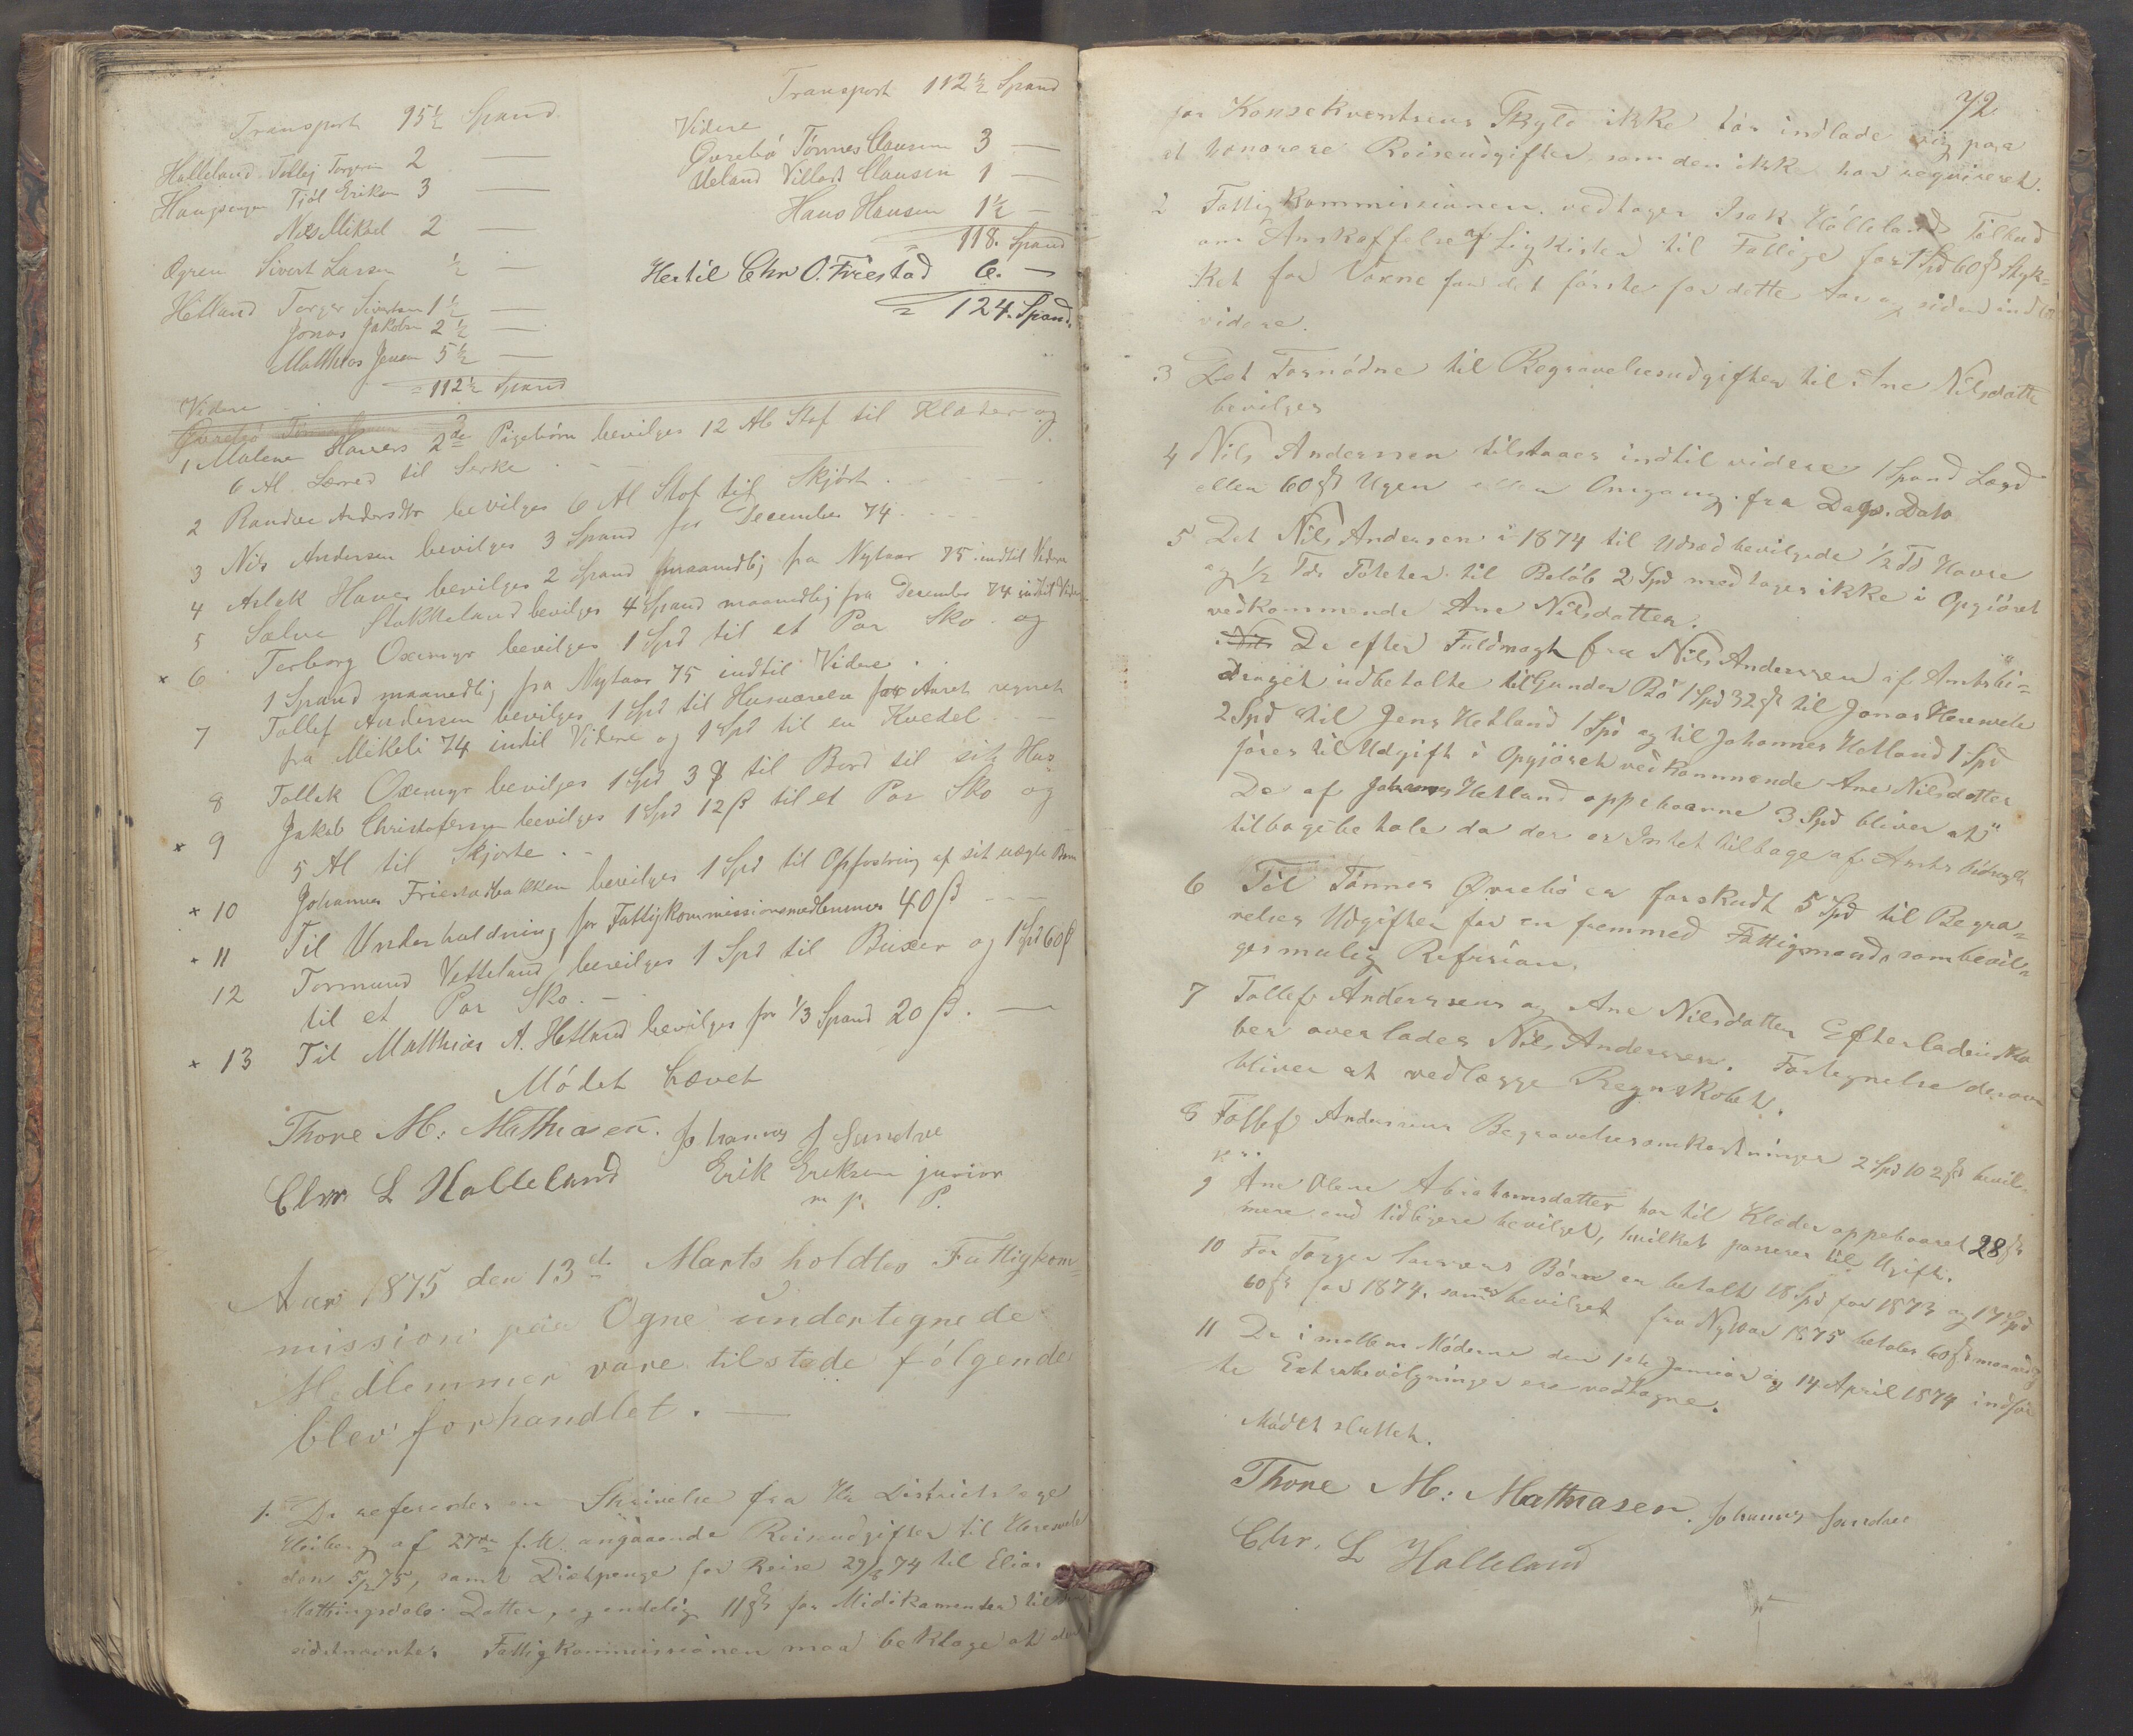 Transport 95½ Spand
Halleland Tollej Torgersen 2 —
Haugsengen Tjøl Eriksen 3 —
Nils Mikael 2 —
Ogren Sivert Larsen ½ —
Hetland Torger Sivertsen 1½ —
Jonas Jakobsen 2½ —
Matthias Jensen 5½ —
= 112½ Spand
Videre
Øvrebø Tønnes Clausen 3
Transport 112½ Spand
Videre
Øvrebø Tønnes Clausen 3 —
Ueland Villads Clausen 1 —
Hans Hansen 1½ —
118. Spand
Hertil Chr O. Friestad 6. —
= 124. Spand.
1 Malene Haaers 2de Pigebørn bevilges 12 Al. Stof til Klæder og
6 Al. Lerred til Serke . – –
2 Randve Andersdtr bevilges 6 Al Stof til Skjørt . – – –
3 Nils Andersen bevilges 3 Spand for December 74. – –
4 Aslak Haaer bevilges 2 Spand maanedlig fra Nytaar 75 indtil Videre
5 Salve Stokkeland bevilges 4 Spand maanedlig fra December 74 indtil Videre
× 6 Terborg Oxemyr bevilges 1 Spd til et Par Sko . og
1 Spand maanedlig fra Nytaar 75 indtil Videre . .
7 Tollef Andersen bevilges 1 Spd til Husværelse for Aaret regnet
fra Mikeli 74 indtil Videre og 1 Spd til en Kvedel . – –
8 Tollak Oxemyr bevilges 1 Spd 3 β til Bord til sit Hus
× 9 Jakob Christofersen bevilges 1 Spd 12 β til et Par Sko og
5 Al til Skjorte . –
× 10 Johannes Friestadbakken bevilges 1 Spd til Opfostring af sit uægte Barn
× 11 Til Underholdning for Fattigkommissionsmedlemmer 40 β – – –
12 Tormund Vetteland bevilges 1 Spd til Buxer og 1 Spd 60 β
til et Par Sko. –
× 13 Til Matthias A. Hetland bevilges for ⅓ Spand 20 β. —
Mødet hævet
Thore M: Mathiasen. Johannes J Sandve
Chr L Halleland Erik Eriksen junior
m p. P.
Aar 1875 den 13de Marts holdtes Fattigkom=
mission paa Ogne undertegnede
Medlemmer vare tilstede følgende
blev forhandlet. —
1. Der refereredes en Skrivelse fra Hr Districtslæge
af 27de f.M. angaaende Reiseudgifter til Hereweele
den 5/2 75, samt Diætpenge for Reise 29/8 74 til Elias
Mattingsdals Datter, og endelig 11 β for Midikamenter til
sidstnævnte. Fattigkommissionen maa beklage at den
72
for Konsekventsens Skyld ikke tør indlade sig paa
at honorere Reiseudgifter, som den ikke har requireret.
2 Fattigkommissionen vedtager Isak Hølleland Tilbud
om Anskaffelse af Ligkister til Fattige for 1 Spd 60 β Styk=
ket for Voxne for det første for dette Aar og siden indtil
videre.
3 Det Fornødne til Begravelsesudgifter til Ane Nilsdatter
bevilges
4 Nils Anderssen tilstaaes indtil videre 1 Spand Lægd
eller 60 β Ugen eller Omgang fra Dags. Dato
5 Det Nils Andersen i 1874 til Udsæd bevilgede ½ Td Havre
og ½ Td Poteter til Beløb 2 Spd medtages ikke i Opgjøret
vedkommende Ane Nilsdatter.
Nils De efter Fuldmagt fra Nils Anderssen af Amtsbi=
draget udbetalte til Gunder Bø 1 Spd 32 β til Jonas Hereweele
2 Spd til Jens Hetland 1 Spd og til Johannes Hetland 1 Spd
føres til Udgift i Opgjøret vedkommende Ane Nilsdatter
De af Johannes Hetland oppebaarne 3 Spd bliver at
tilbagebetale da der er Intet tilbage af Amtsbidraget
6 Til Tønnes Øvrebø er forskudt 5 Spd til Begra=
velses Udgifter for en fremmed Fattigmand, som bevil=
ges mulig Refusion.
7 Tollef Anderssens og Ane Nilsdatter Efterladenska
ber overlades Nils Anderssen. Fortegnelse derover
bliver at vedlægge Regnskabet.
8 Tollef Anderssens Begravelsesomkostninger 2 Spd 102 β bevil=
9 Ane Olene Abrahamsdatter har til Klæder oppebaaret 28 β
mere end tidligere bevilget, hvilket passerer til Ugift.
10 For Torger Børn er betalt 18 Spd for 1873 og 17 Spd
60 β for 1874, som er bevilget fra Nytaar 1875 betales 60 β maanedlig
11 De i mellem Møderne den 1ste Januar og 14 April 1874 indfør
te Extrabevilgninger ere vedtagne.
Mødet sluttet.
Thore M: Mathiasen. Johannes Sandve
Chr. L Halleland